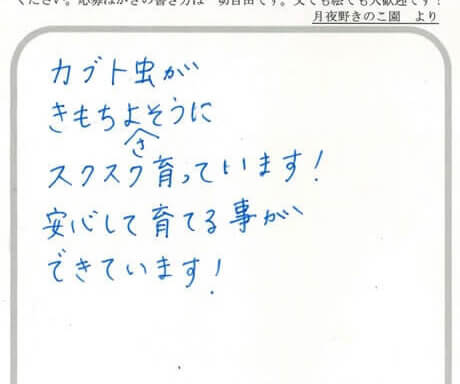 ください。応募はがきの書き方は一切自由です。文でも絵でも大歓迎です！
月夜野きのこ園　より
カブト虫が
きもちよさそうに
スクスク育っています！
安心して育てる事が、
できています！